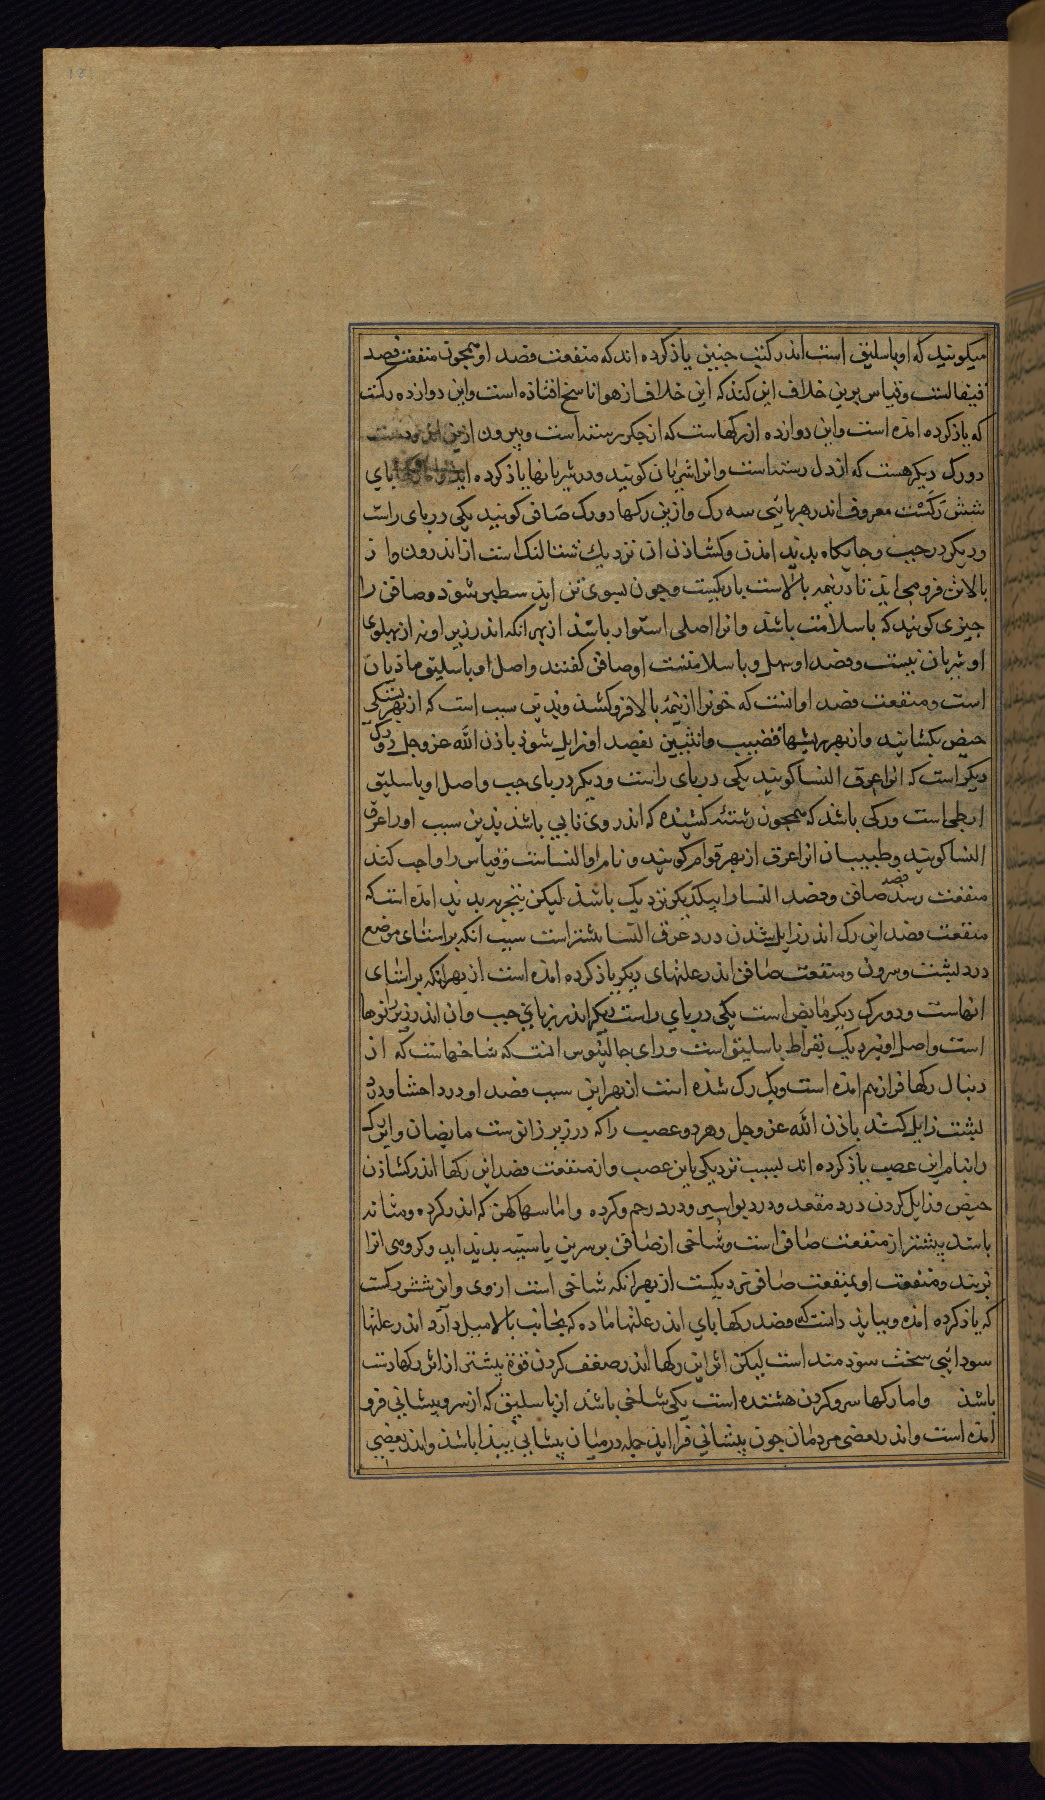 میکویند که او باسلیق است اندر کتب جنین یاذ کرده اند که منفعت فصد او همجون منفعت فصد
قیفالست وقیاس برین خلاف این کند که این خلاف از هوا ناسخ افتاذه است واین دوازده رکست
که یاذ کرده امذه است واین دوازده از رکهاست که از جکر رسته است وبیرون ازین
دو رک دیکر هست که از دل رسته است وانرا شریان کویند ودر شریانها یاذ کرده اید بای
شش رکست معروف اندر هر بائی سه رک وازین رکها دو رک صافن کویند یکی در بای راست
ودیکر در جب وجایکاه بدید امذن وکشاذن ان نزدیک شتالنک است از اندرون واز
بالاش فرو می اید تا در نیمه بالاست باریکست وجون بسوی تن اید سطبر شود وصافن را
جیزی کویند که با سلامت باشد وانرا اصلی استوار باشذ از بهر انکه اندر زیر او نه از بهلوی
او شریان نیست وفصد او سهل وبا سلامتست او صافن کفتند واصل او باسلیق ماذیان
است ومنفعت فصد او انست که خونرا از نیمه بالا فرو کشذ وبذین سبب است که از بهر بستکی
حیض بکشایند وان بهر ریشها قضیب وانثیین بفصد او زایل شوذ باذن الله عز وجل دو رک
دیکر است که انرا عرق النسا کویند یکی در بای راست ودیکر در بای جب واصل او باسلیق
ابطی است ورکی باشد که همجون رشته کشیده که اندر وی تابی باشذ بذین سبب اورا عرق
النسا کویند وطبیبان انرا عرق از بهر قوام کویند ونام او النساست وقیاس را واجب کند
منفعت رسذ فصد صافن وفصد النسا وا بیکدیکر نزدیک باشذ لیکن بتجربه بدید امذه است که
منفعت فصد این رک اندر زایل شدن درد عرق النسا بشتر است سبب انکه براستای موضع
درد بشت وسرون ومنفعت صافن اندر علتهای دیکر یاذ کرده امذه است از بهر انکه براستای
انهاست ودو رک دیکر مابض است یکی در بای راست دیکر اندر زبای جب وان اندر زیر زانوها
است واصل او بنزدیک بقراط باسلیق است ورای جالینوس انست که شاخهاست که از
دنبال رکها فراز هم امذه است ویک رک شذه است از بهر این سبب فصد او درد احشا ودرد
بشت زایل کند باذن الله عز وجل وهر دو عصب را که در زیر زانوست مابضان واین رک
را بنام این عصب یاذ کرده اند لسبب نزدیکی باین عصب وان منفعت فصد این رکها اندر کشاذن
حیض وزایل کردن درد مقعد ودرد بواسیر ودرد رحم وکرده واماسها کهن که اندر کرده ومثانه
باشد بیشتر از منفعت صافن است وشاخی از صافن بر سرین یا سینه بدید اید وکروهی انرا
بزنند ومنفعت او بمنفعت صافن نزدیکست از بهر انکه شاخی است از وی واین شش رکست
که یاذ کرده امذه وبباید دانست که فصد رکها بای اندر علتها ماده که بجانب بالا میل دارد اندر علتها
سودایی سخت سوذمند است لیکن اثر این رکها اندر ضعف کردن قوة بیشتر از اثر رکها دست
باشذ واما رکها سر وکردن هشتده است یکی شاخی باشد از باسلیق که از سر وبیشانی فرو
امذه است واندر بعضی مردمان جون بیشانی فراز اید جمله در میان بیشانی بیذا باشذ واندر بعضی